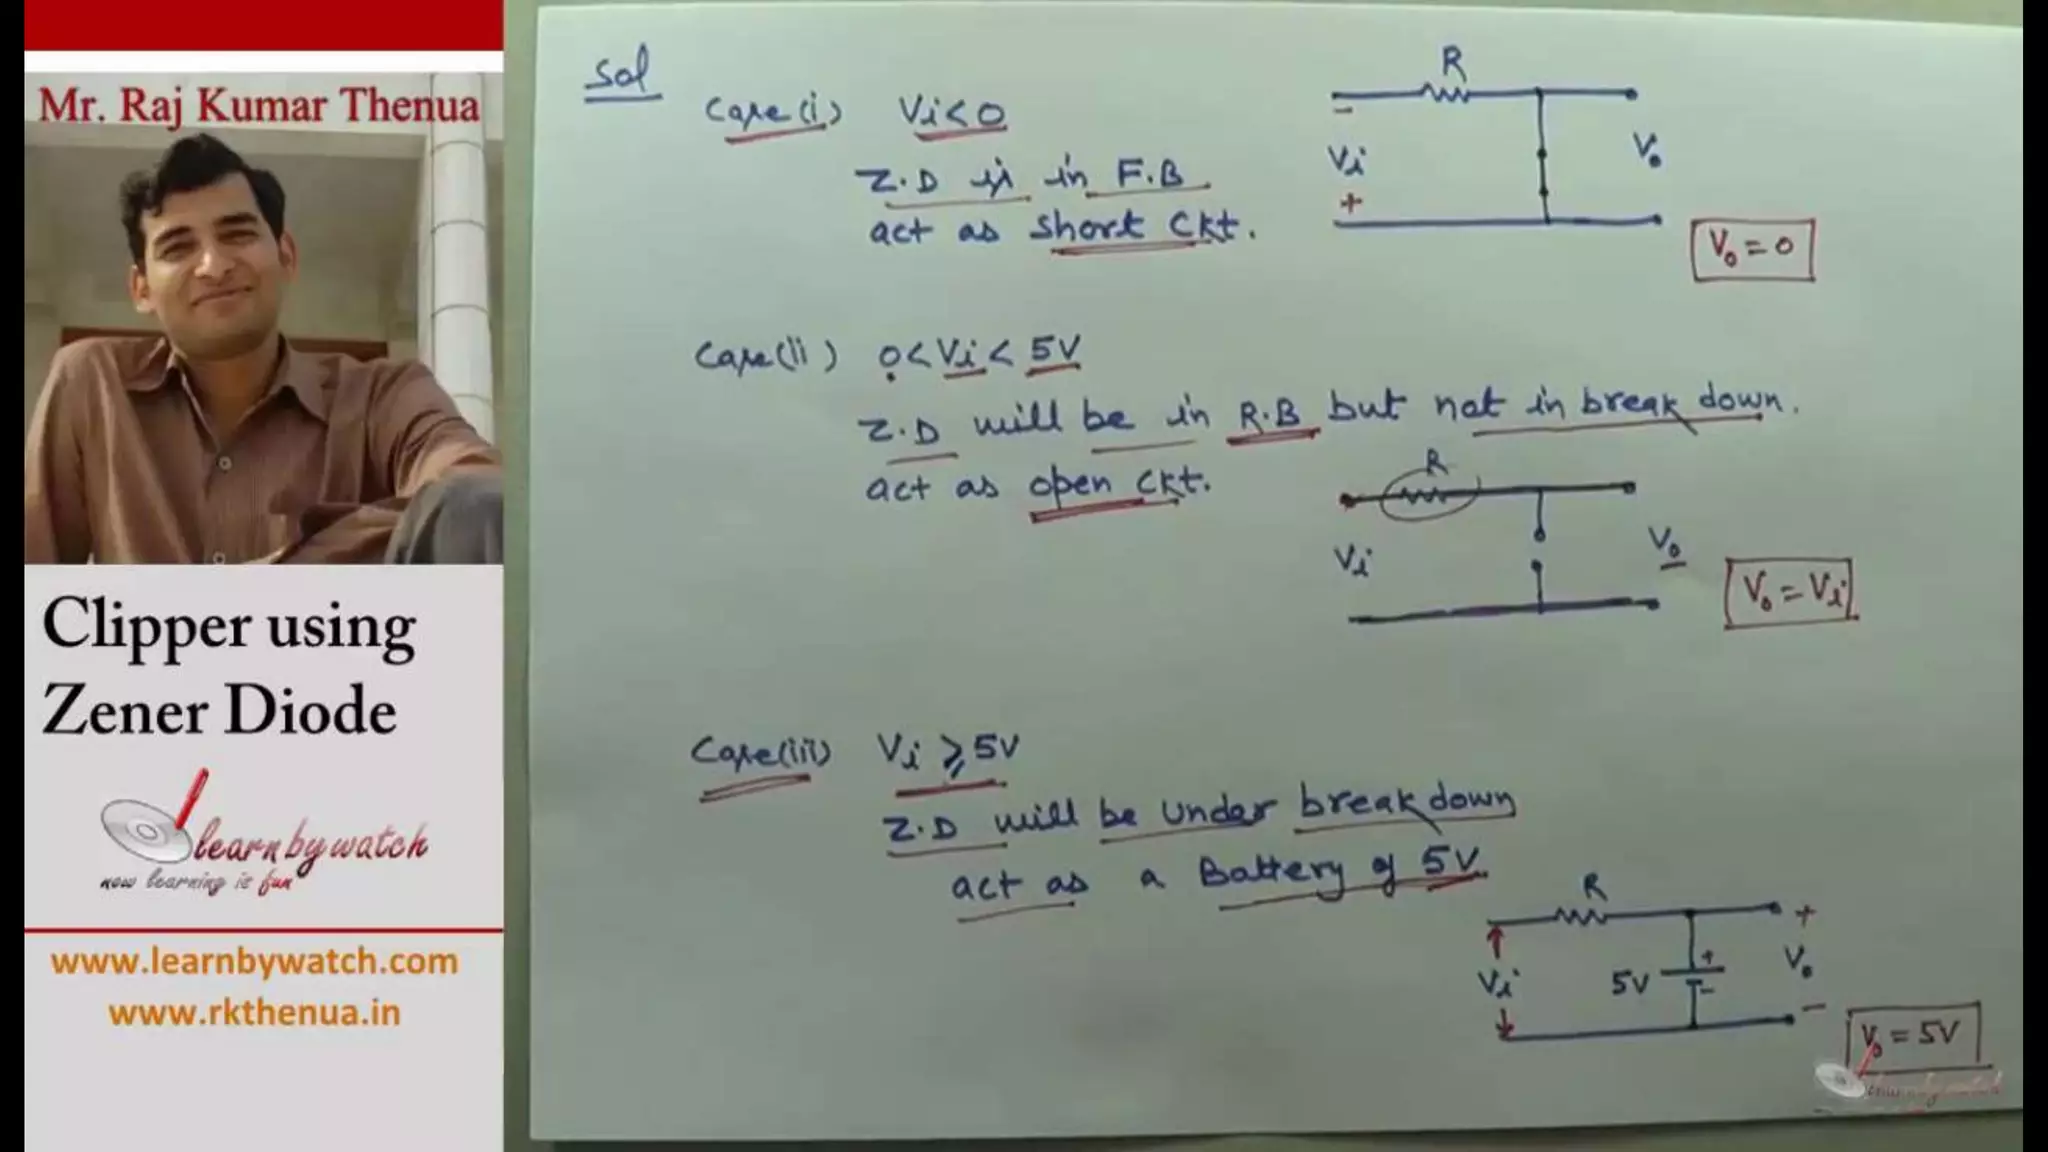 Mr. Raj Kumar Thenua
Clipper using
Zener Diode
learnbywatch
now learning is fun
www.learnbywatch.com
www.rkthenua.in
Sol
Case(i) Vi<0
Z.D is in F.B
act as short Ckt.
R
-
Vi
+
Vo
Vo = 0
Case(ii) 0<Vi<5V
Z.D will be in R.B but not in break down.
act as open Ckt.
R
Vi
Vo
Vo = Vi
Case(iii) Vi ⩾ 5V
Z.D will be under breakdown
act as a Battery of 5V
R
+
Vi
5V
+
-
Vo
-
Vo = 5V
learnbywatch